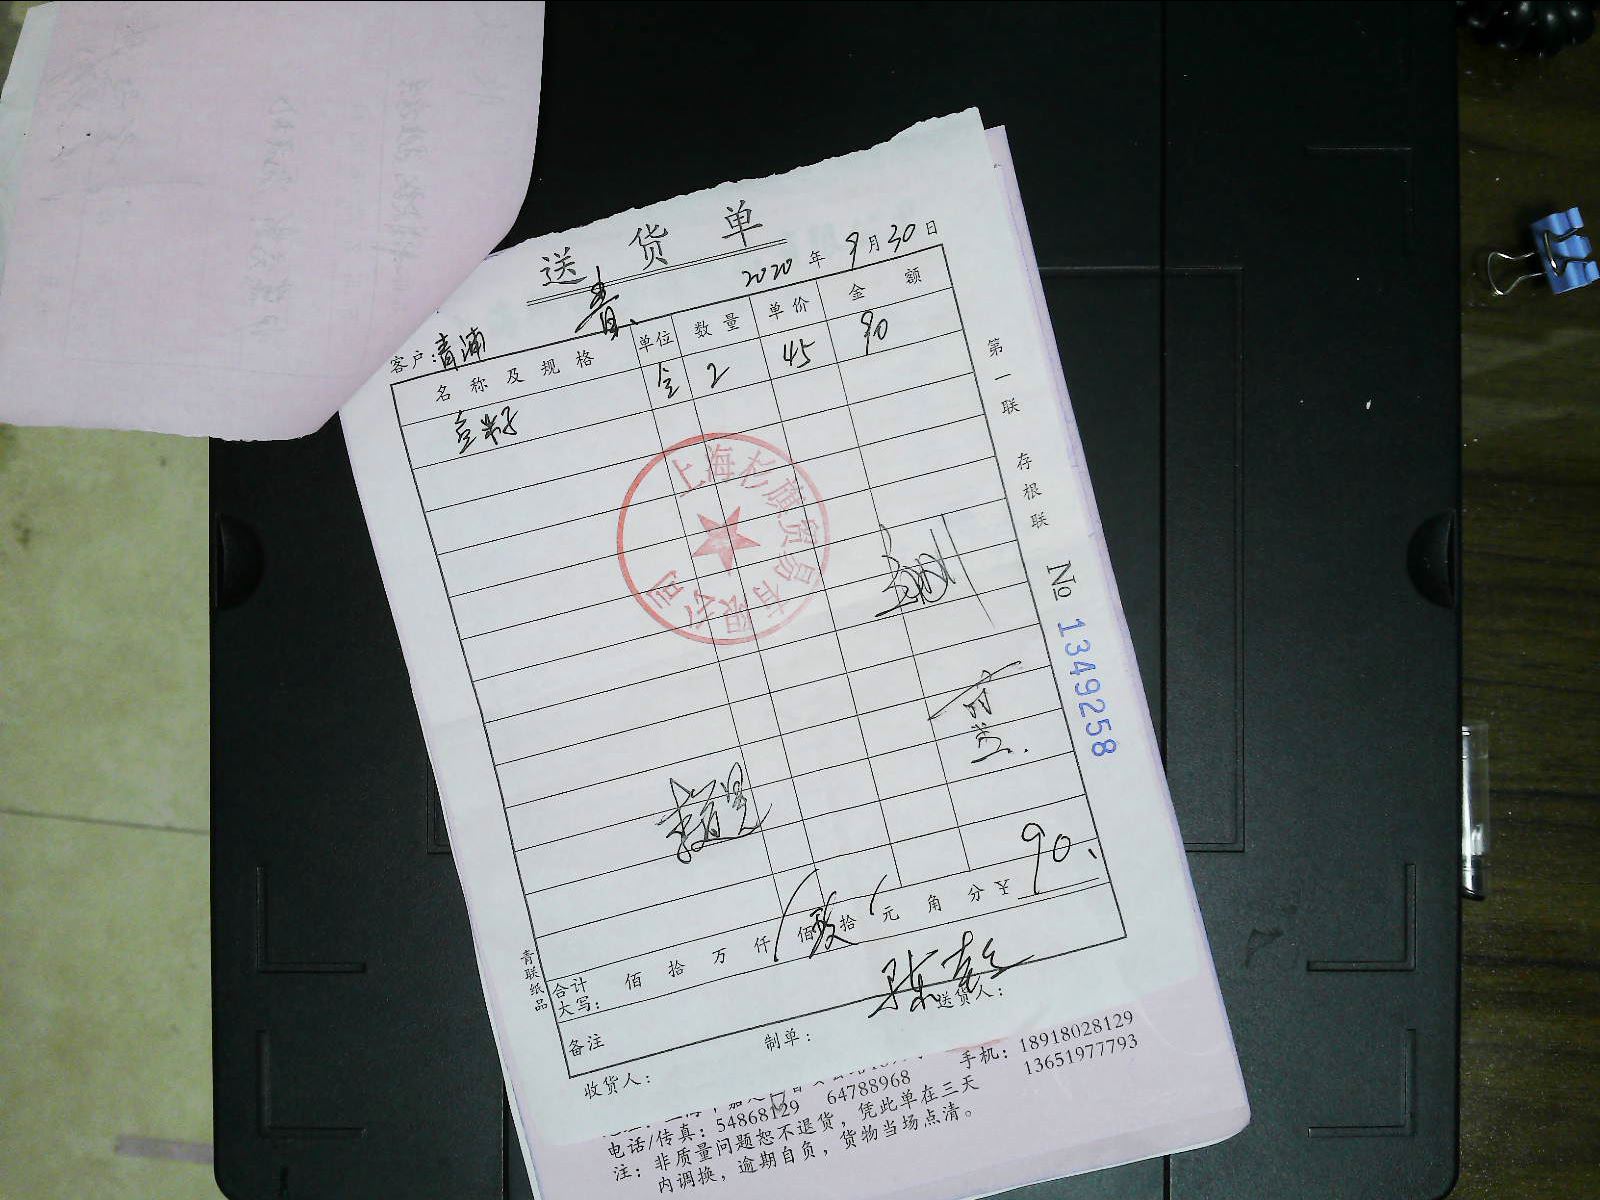 送货单
2020年9月30日
客户:青浦
名称及规格 单位 数量 单价 金额
2 45 90
上海杉旗贸易有限公司
第一联 存根联
№ 1349258
青联纸品
合计
大写: 佰拾万仟佰玖拾元角分 ¥ 90
备注
制单:
送货人:
收货人:
手机: 18918028129
13651977793
电话/传真: 54868129 64788968
注: 非质量问题恕不退货, 凭此单在三天
内调换, 逾期自负, 货物当场点清。